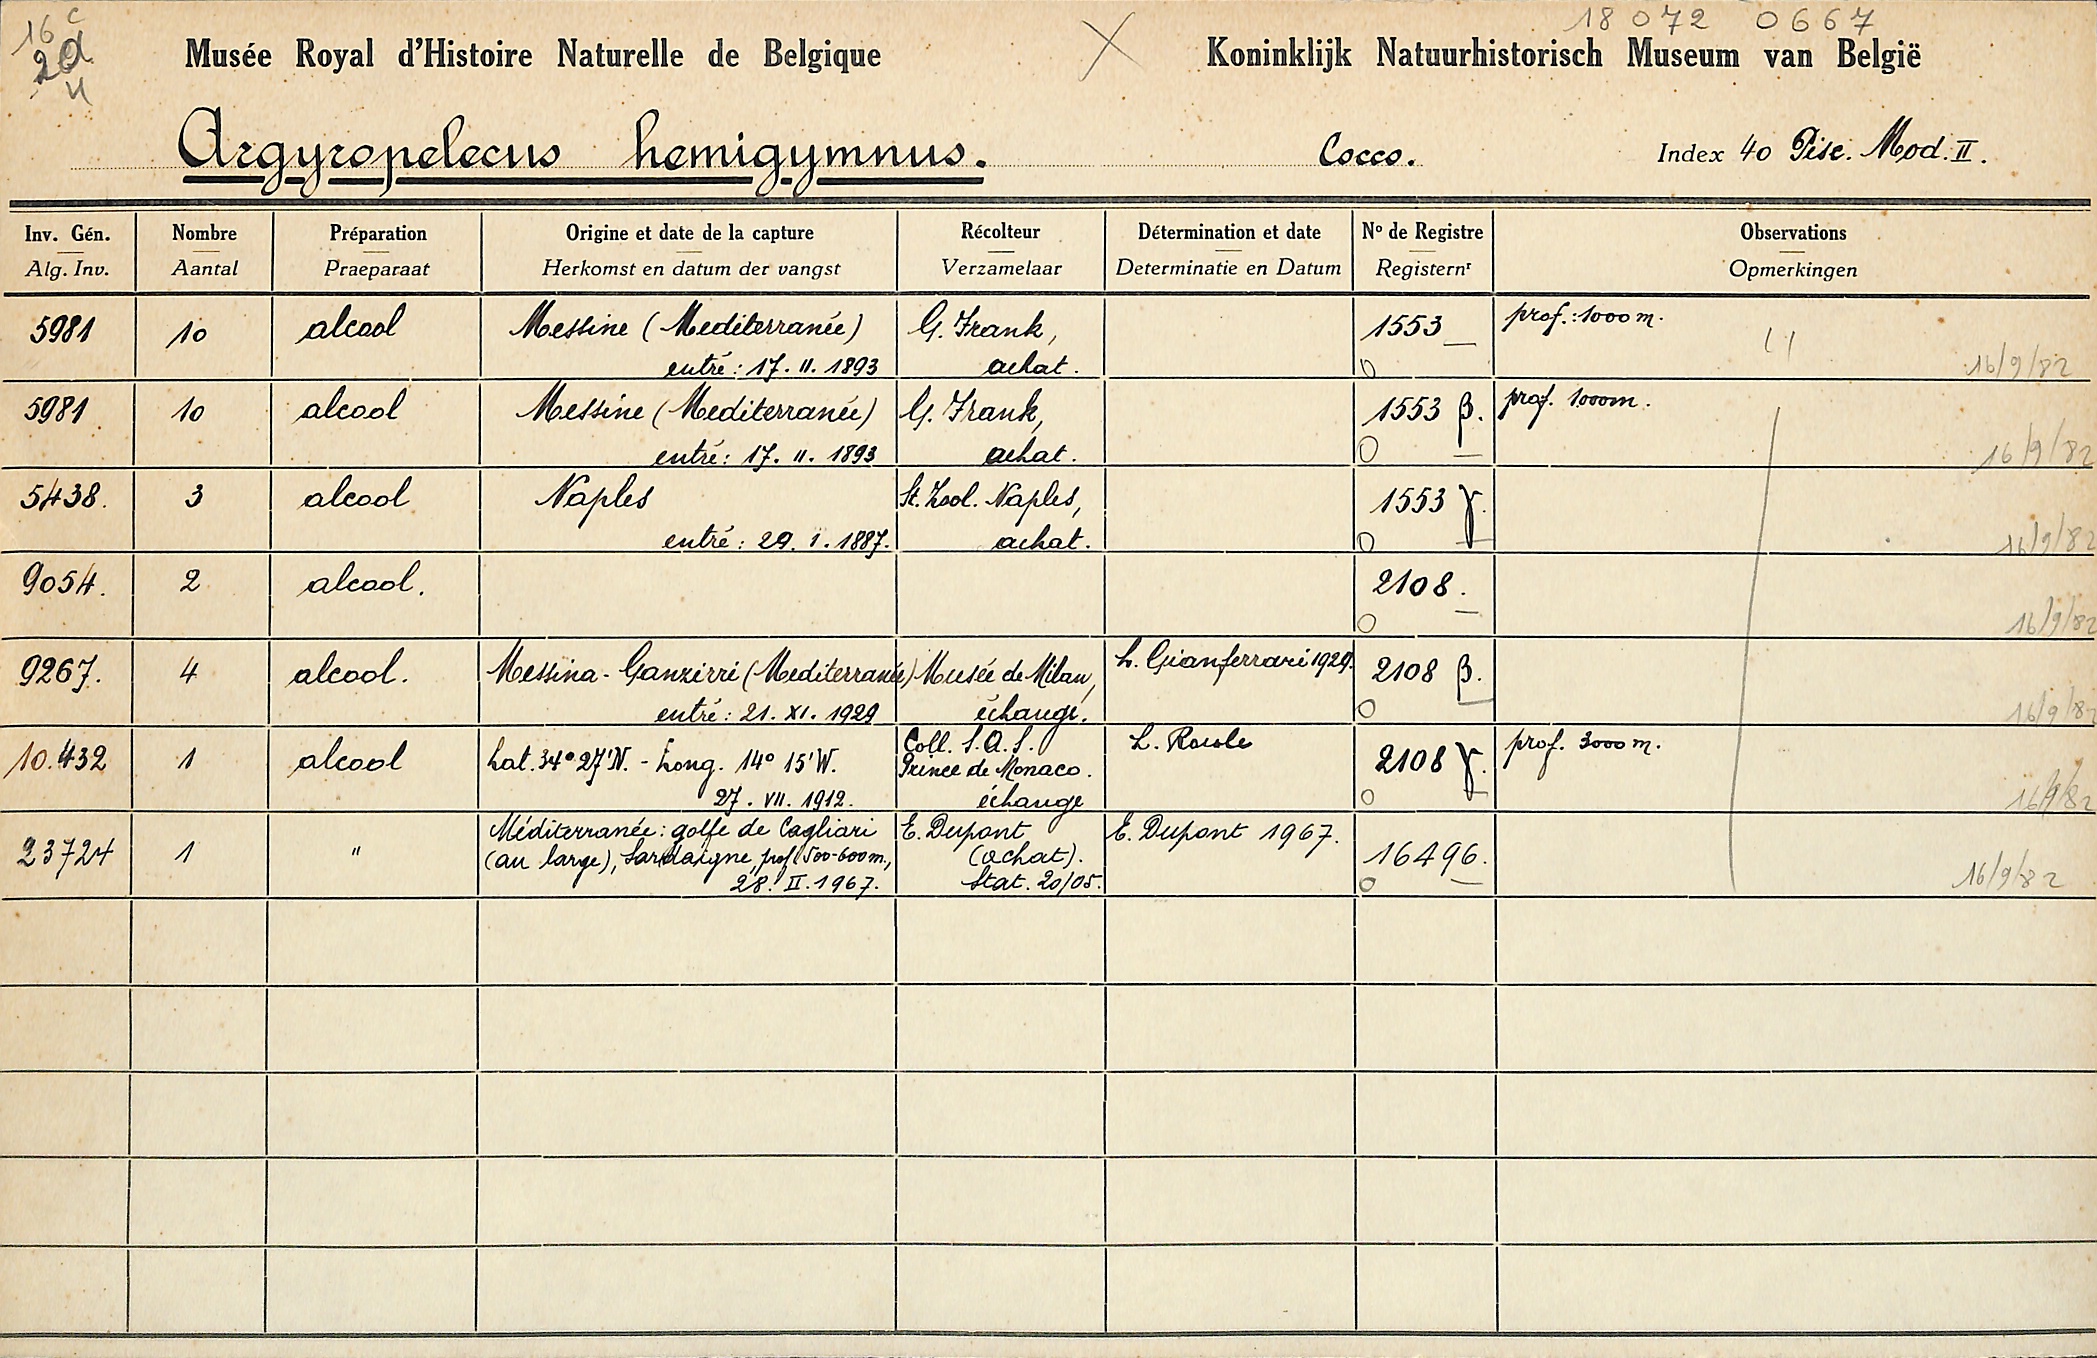 16 c
2a
4
18 072 0667
Musée Royal d'Histoire Naturelle de Belgique
Koninklijk Natuurhistorisch Museum van België
Argyropelecus hemigymnus.
Cocco.
Index 40 Pisc. Mod. II.
Inv. Gén. Nombre Préparation Origine et date de la capture Récolteur Détermination et date Nº de Registre Observations
Alg. Inv. Aantal Praeparaat Herkomst en datum der vangst Verzamelaar Determinatie en Datum Registernr Opmerkingen
5981 10 alcool Messine (Mediterranée) G. Frank, 1553 prof.: 1000 m.
entré: 17. II. 1893 achat. 16/9/82
5981 10 alcool Messine (Mediterranée) G. Frank, 1553 β. prof. 1000m.
entré: 17. II. 1893 achat. 16/9/82
5438. 3 alcool Naples St. Zool. Naples, 1553 γ.
entré: 29. I. 1887. achat. 16/9/82
9054. 2 alcool. 2108.
16/9/82
9267. 4 alcool. Messina - Ganzirri (Mediterranée) Musée de Milan, L. Gianferrari 1929. 2108 β.
entré: 21. XI. 1929 échange. 16/9/82
10.432 1 alcool Lat. 34° 27' N. - Long. 14° 15' W. Coll. S. A. S. L. Roule 2108 γ. prof. 3000 m.
Prince de Monaco.
27. VII. 1912. échange 16/9/82
23724 1 " Méditerranée: golfe de Cagliari E. Dupont E. Dupont 1967. 16496.
(au large), Sardaigne, prof. 500-600m., (achat).
28. II. 1967. Stat. 20/05. 16/9/82